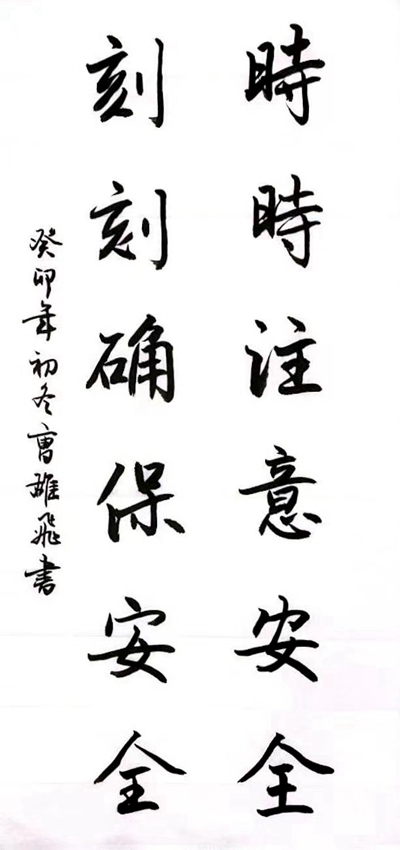 時時注意安全
刻刻确保安全
癸卯年初冬曹雄飛书